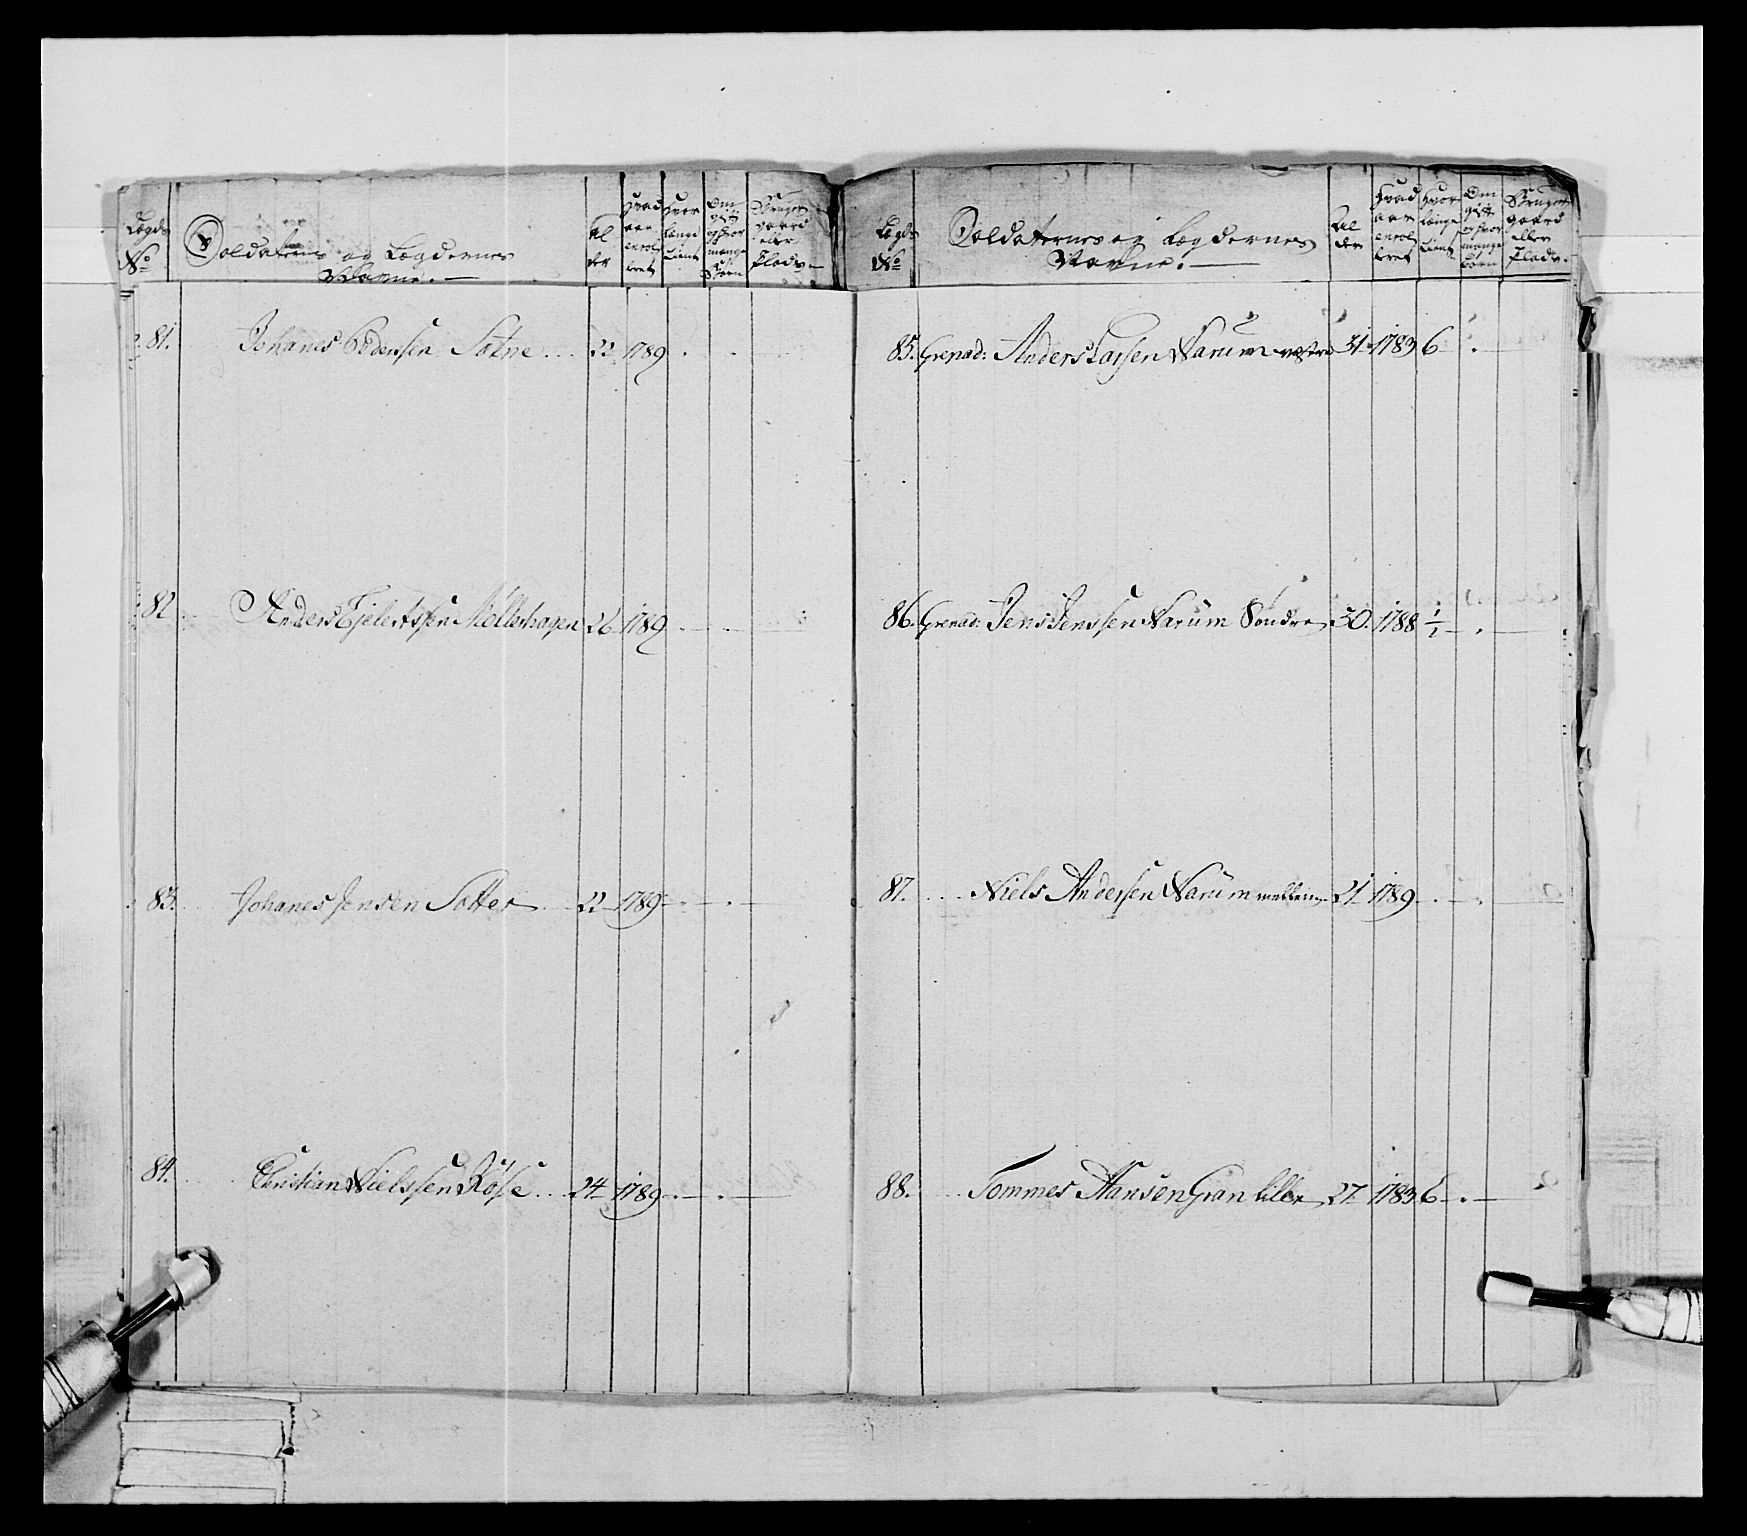 Lægds No
Soldaternes og Lægdernes Navne.
Al der
Hvad aar enrol leret
Hvor længe tient
Om gift og hvor mange Børn
Bruger gaard eller Plads
81. Johanes Pedersen Sotne 22 1789
82 Anders Ejlertssen Møllerhagen 26 1789
83. Johanes Jensen Sotter 22 1789
84. Christian Nielssen Røse 24 1789
Lægds No
Soldaternes og Lægdernes Navne.
Al der
Hvad aar enrol leret
Hvor længe tient
Om gift og hvor mange børn
Bruger gaard eller Plads
85. Grenad: Anders Larsen Narum vestre 31 1783 6
86. Grenad: Jens Jenssen Narum Søndre 30. 1788 1/1
87. Niels Andersen Narum mellem 21 1789
88. Tommes Hansen Gran lille 27 1783 6